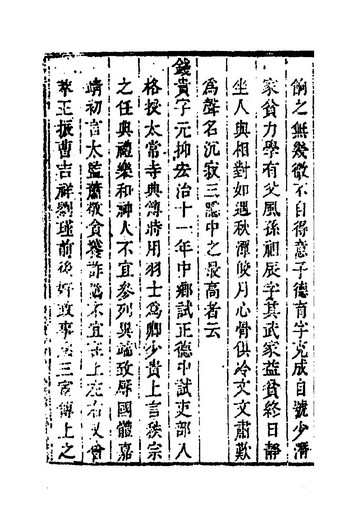 餉之無幾微不自得意子德育字克成自號少潛
家貧力學有父風孫祖辰字其武家益貧終日靜
坐人與相對如遇秋潭皎月心骨俱冷文文肅歎
爲聲名沉寂三隱中之最高者云
錢貴字元抑宏治十一年中鄉試正德中試吏部入
格授太常寺典簿時用羽士爲卿少貴上言秩宗
之任典禮樂和神人不宜參列異端致辱國體嘉
靖初言太監蕭敬貪獲詐譎不宜在上左右又會
萃王振曹吉祥劉瑾前後奸政事三宦傳上之